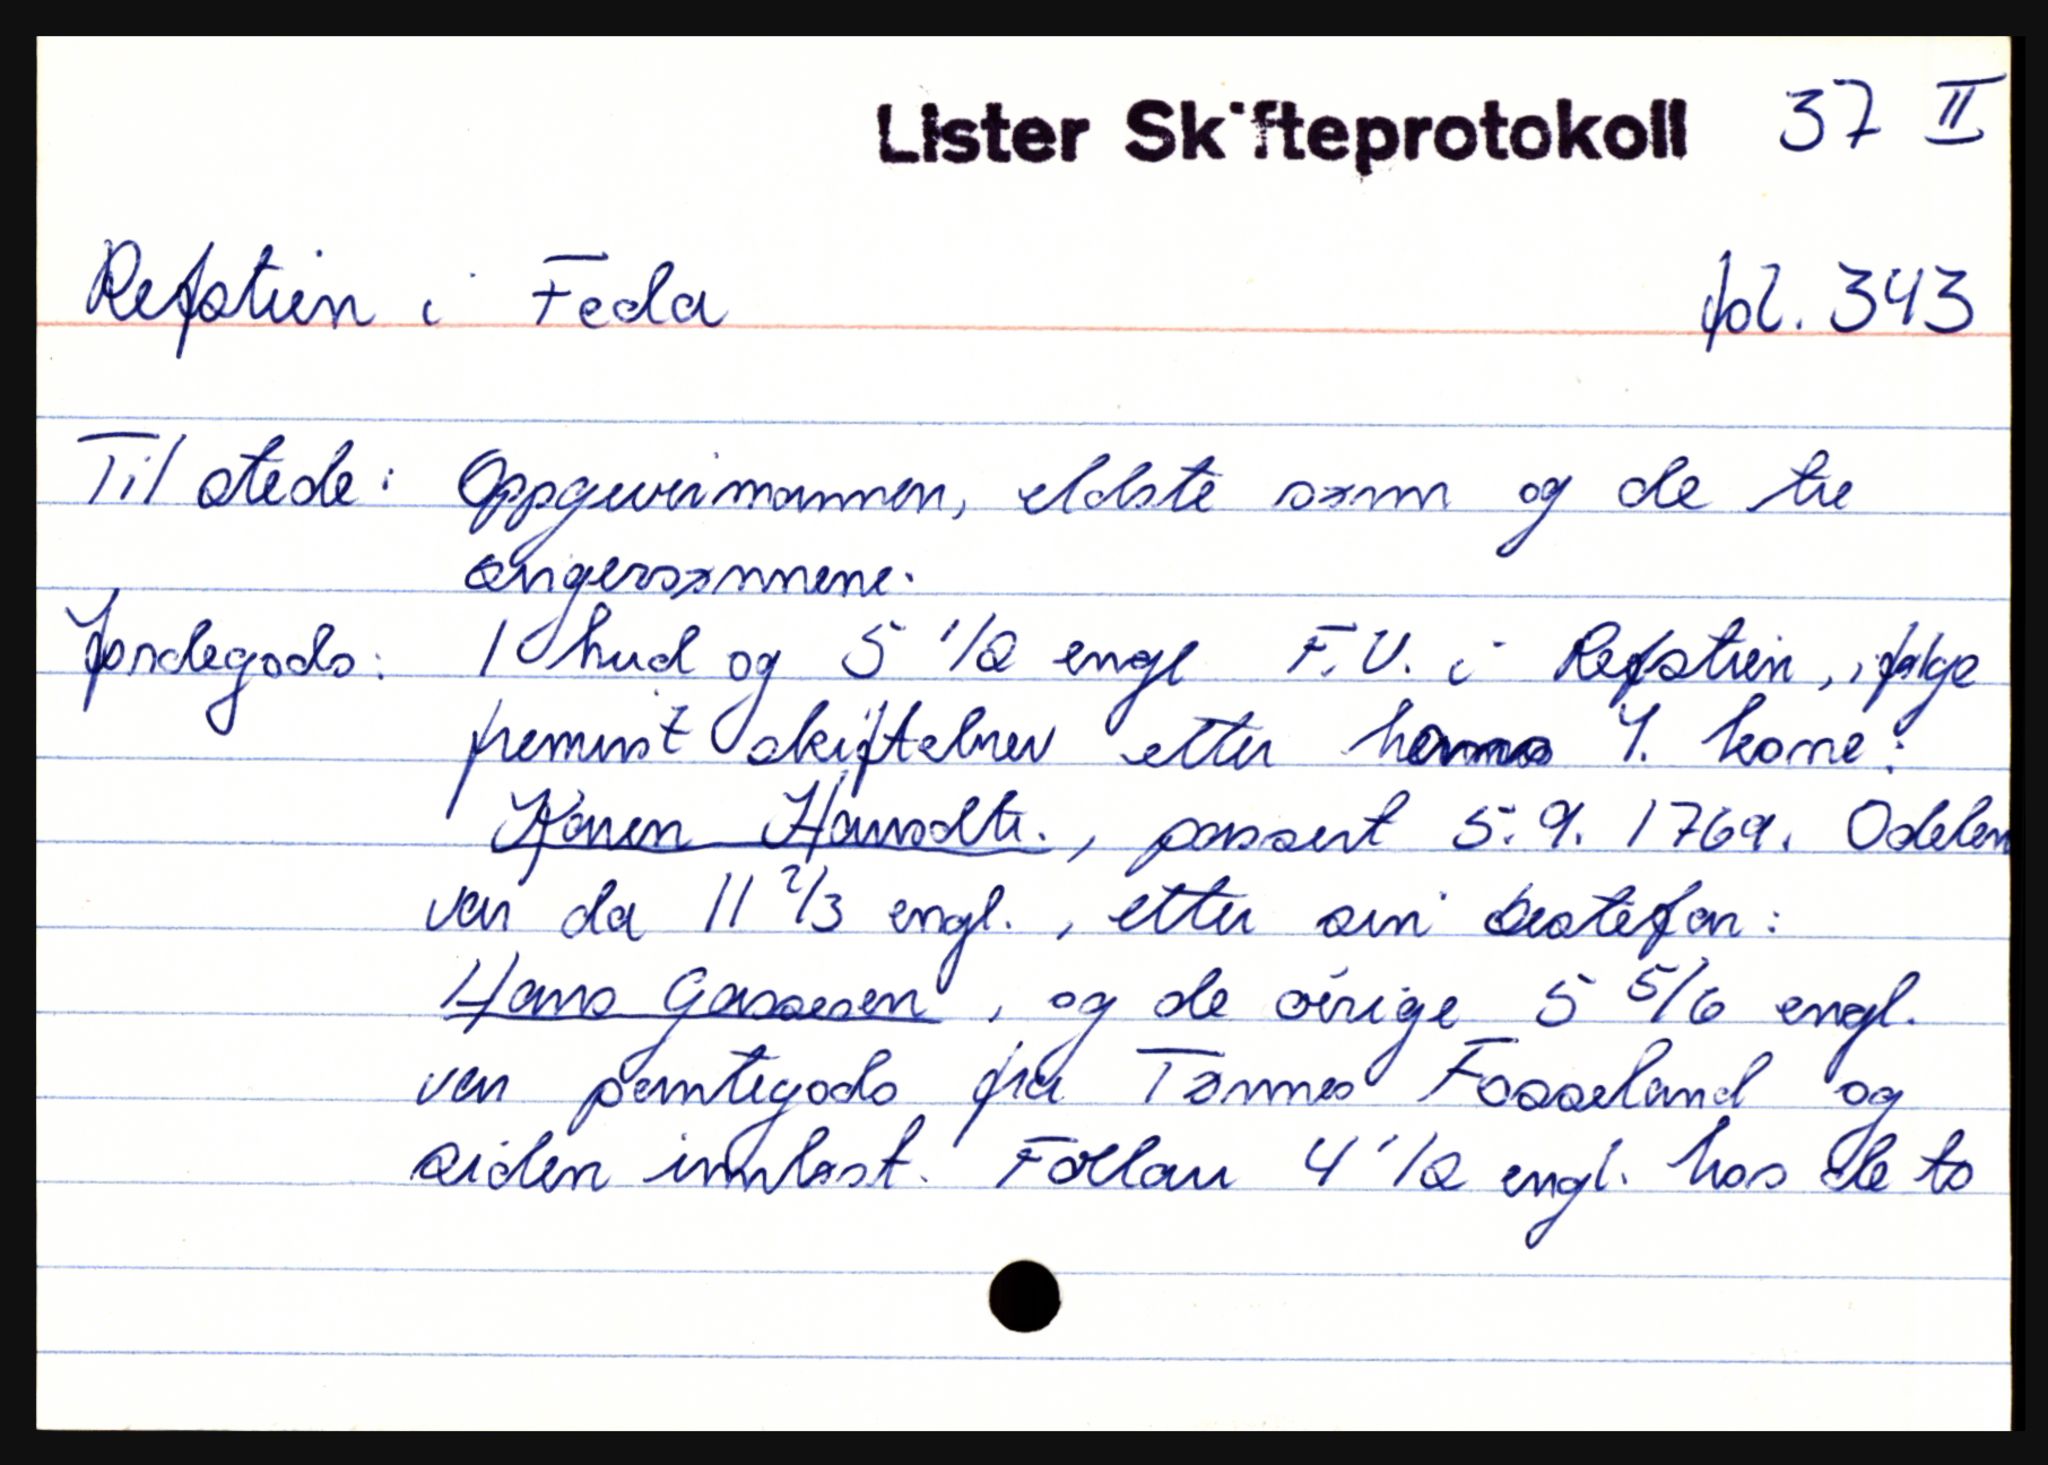 Lister Skifteprotokoll 37 II
Refstien i Feda fol. 343
Til stede: Oppgivermannen, eldste sønn og de tre
svigersønnene.
Jordegods: 1 hud og 5 1/2 engl F.V. i Refstien, ifølge
fremvist skiftebrev etter hanns 1. kone:
Karen Hansdtr., passert 5.9.1769. Odelen
var da 11 2/3 engl., etter sin bestefar:
Hans Gassesen, og de øvrige 5 5/6 engl.
var pantegods fra Tønnes Fosseland og
siden innløst. Follau 4 1/2 engl. hos de to